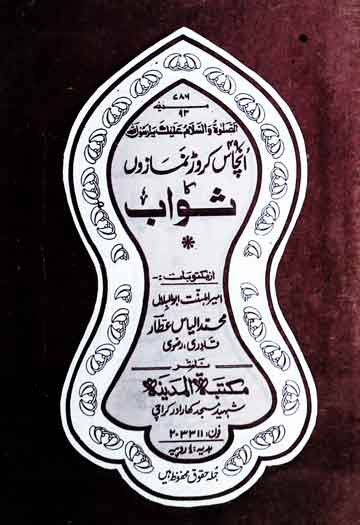 ۷۸۶
۹۲
الصلوٰۃ والسلام علیک یا رسول اللہ
۴۹
اُنچاس کروڑ نمازوں
کا
ثواب
از مکتوبات:-
امیر اہلسنت ابوالبلال
محمد الیاس عطار
قادری، رضوی
ناشر
مکتبۃ المدینہ
شہید مسجد کھارادر کراچی
فون: ۲۰۳۳۱۱
ہدیہ: ۱ روپیہ
جملہ حقوق محفوظ ہیں